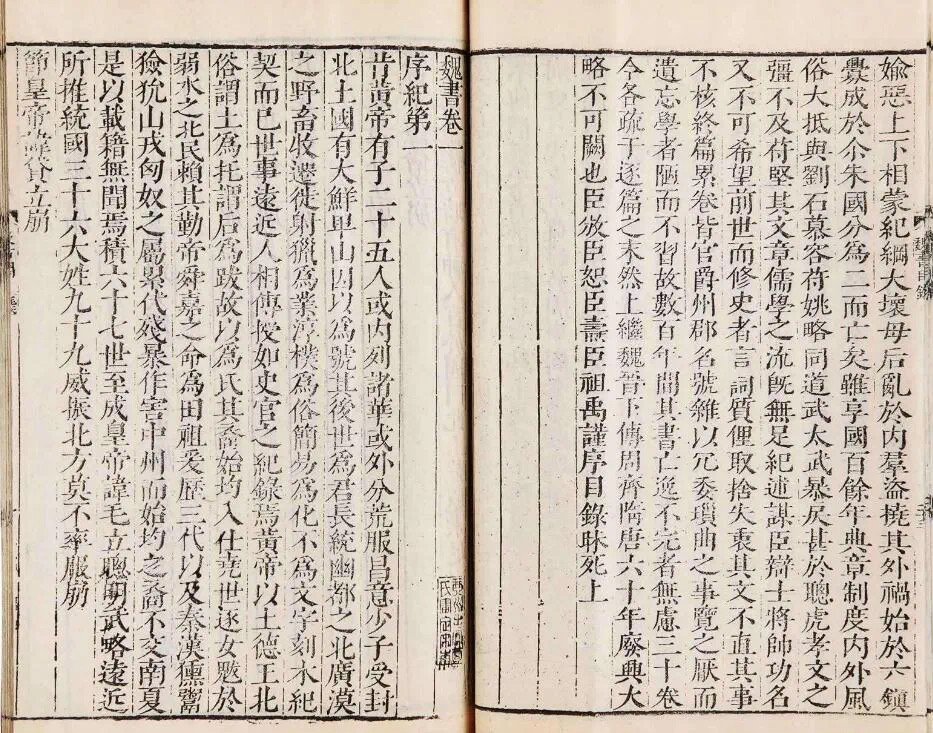 媮惡上下相蒙紀綱大壞母后亂於内羣盗撓其外禍始於六鎮
釁成於尒朱國分為二而亡矣雖享國百餘年典章制度内外風
俗大抵與劉石慕容苻姚略同道武太武暴戾甚於聰虎孝文之
彊不及苻堅其文章儒學之流旣無足紀述謀臣辯士將帥功名
又不可希望前世而修史者言詞質俚取捨失衷其文不直其事
不核終篇累卷皆官爵州郡名號雜以冗委瑣曲之事覽之厭而
遺忘學者陋而不習故數百年間其書亡逸不完者無慮三十卷
今各疏于逐篇之末然上繼魏晉下傳周齊隋唐六十年廢興大
略不可闕也臣攽臣恕臣燾臣祖禹謹序目錄昧死上
魏書目錄
魏書卷一
序紀第一
昔黄帝有子二十五人或内列諸華或外分荒服昌意少子受封
北土國有大鮮卑山因以為號其後世為君長統幽都之北廣漠
之野畜牧遷徙射獵為業淳樸為俗簡易為化不為文字刻木紀
契而已世事遠近人相傳授如史官之紀錄焉黄帝以土德王北
俗謂土為托謂后為跋故以為氏其裔始均入仕堯世逐女魃於
弱水之北民賴其勤帝舜嘉之命為田祖爰歷三代以及秦漢獯鬻
獫狁山戎匈奴之屬累代殘暴作害中州而始均之裔不交南夏
是以載籍無聞焉積六十七世至成皇帝諱毛立聰明武略遠近
所推統國三十六大姓九十九威振北方莫不率服崩
節皇帝諱貸立崩